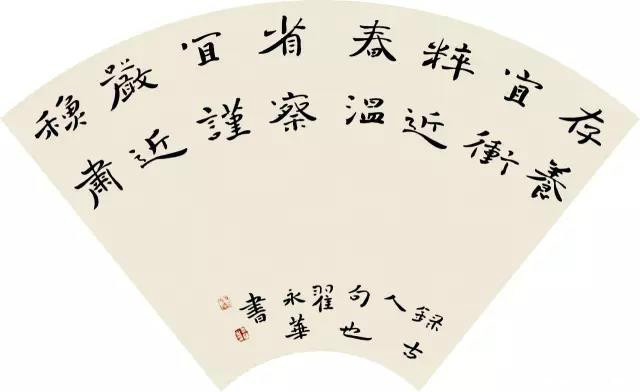 存養
宜衝
粹近
春溫
省察
宜謹
嚴近
龝肅
録古
人
句也
翟
永華
書